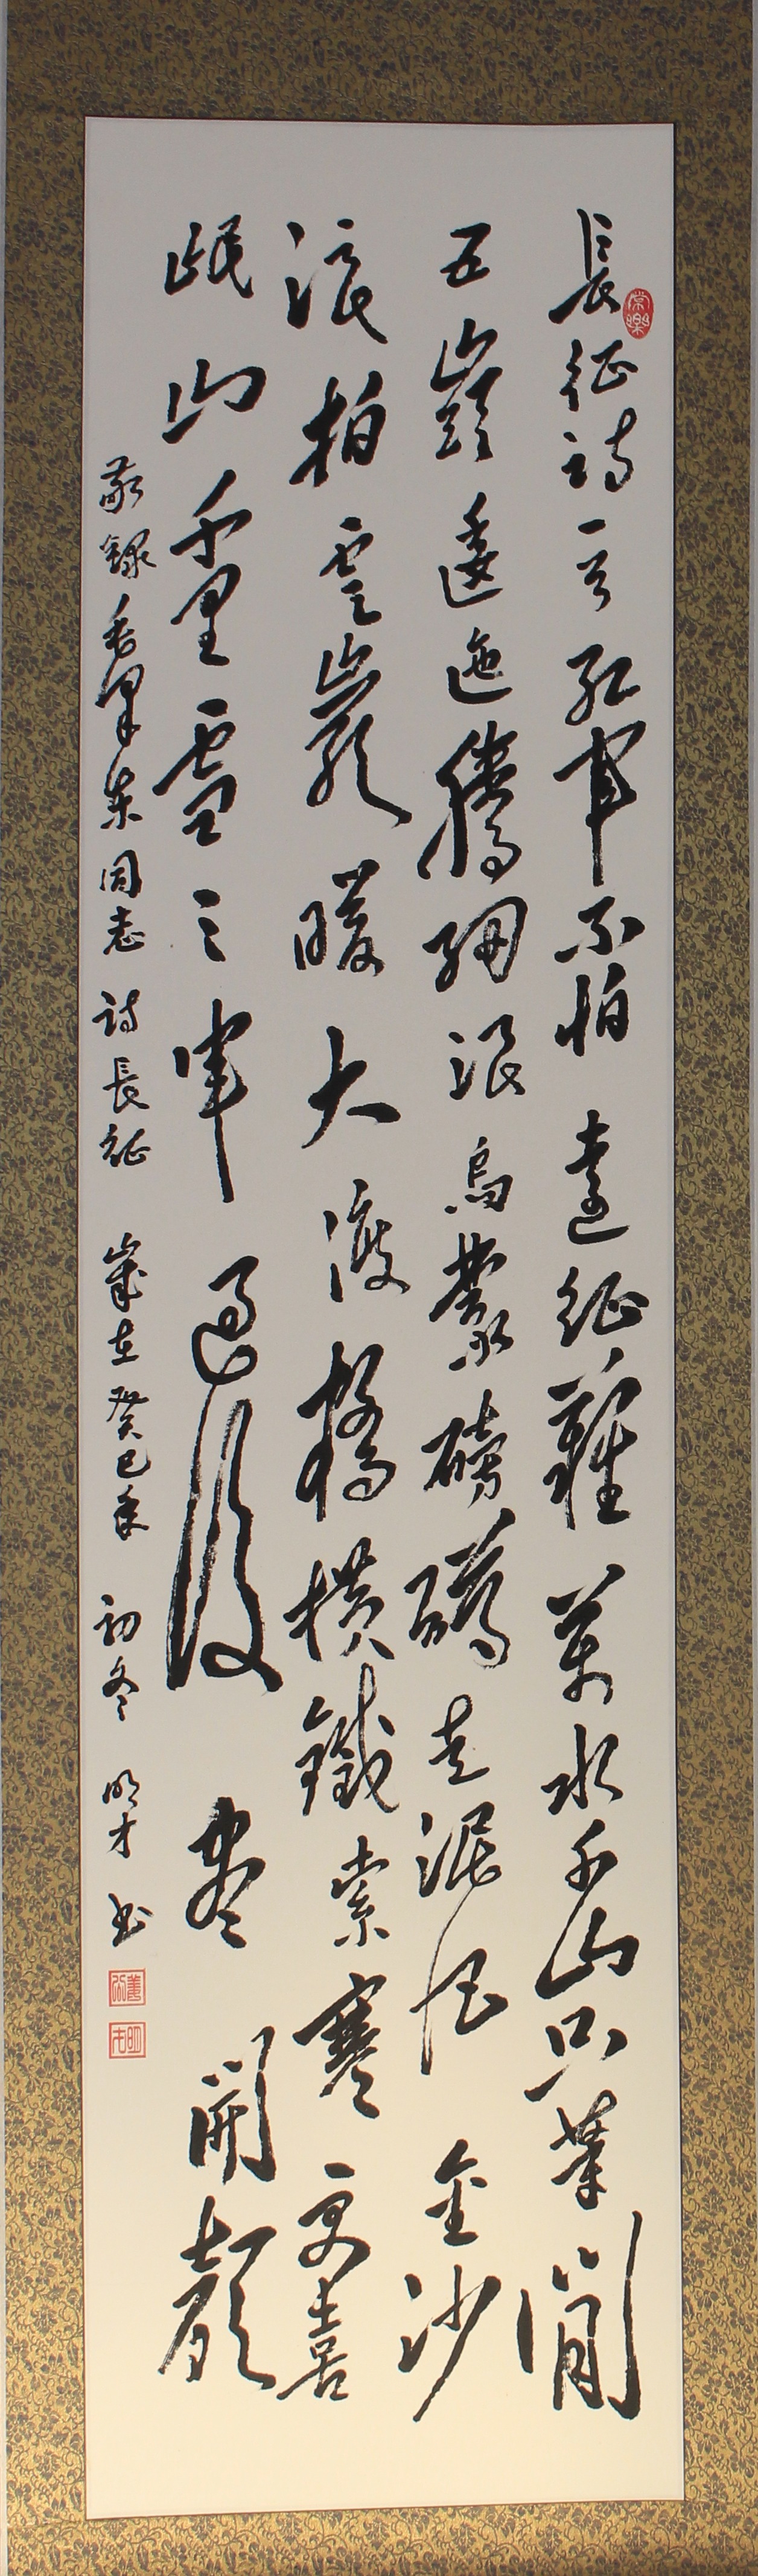 長征詩一首紅軍不怕遠征難萬水千山只等閒
五嶺逶迤騰細浪烏蒙磅礴走泥丸金沙
浪拍雲巖暖大渡橋橫鐵索寒更喜
岷山千里雪三軍過後盡開顏
敬錄毛澤東同志詩長征歲在癸巳年初冬明才書